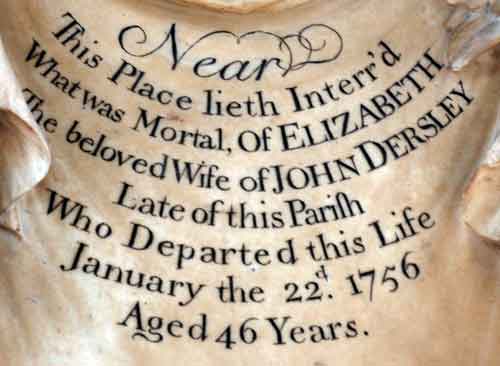 Near
This Place lieth Interr'd
What was Mortal, Of ELIZABETH
The beloved Wife of JOHN DERSLEY
Late of this Pariſh
Who Departed this Life
January the 22.d 1756
Aged 46 Years.